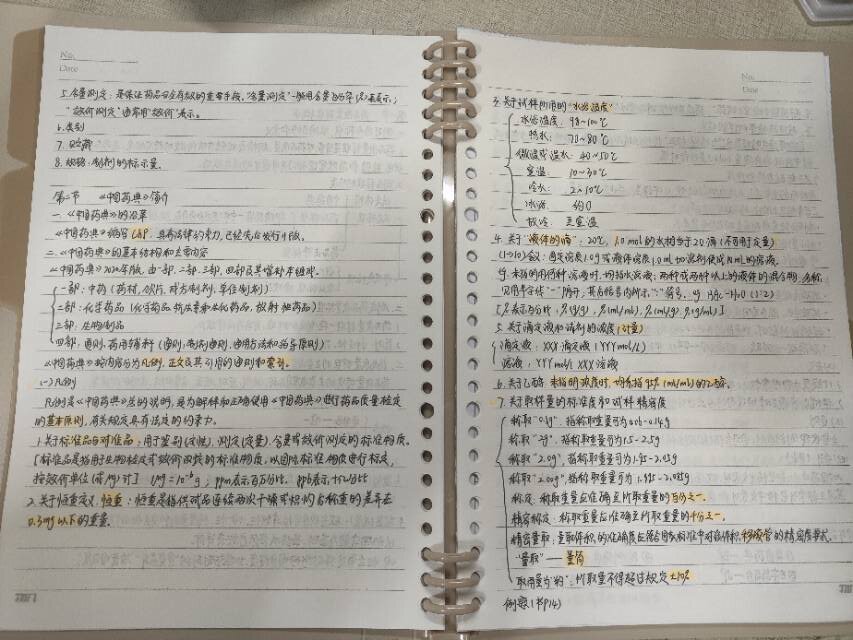 No.
Date
5. 含量测定: 是保证药品安全有效的重要手段, "含量测定"一般用含量百分率(%)来表示;
"效价测定"通常用"效价"表示。
6. 类别
7. 贮藏
8. 规格: 制剂的标示量.
第二节 《中国药典》简介
一. 《中国药典》的沿革
《中国药典》缩写ChP, 具有法律约束力, 已经先后发行11版。
二. 《中国药典》的基本结构和主要内容
《中国药典》2020年版, 由一部、二部、三部、四部及其增补本组成.
一部: 中药 (药材, 饮片, 成方制剂, 单位制剂)
二部: 化学药品 (化学药品 抗生素 生化药品, 放射性药品)
三部: 生物制品
四部: 通则, 药用辅料 (通则, 制剂通则, 通用方法和指导原则)
《中国药典》按内容分为凡例, 正文及其引用的通则和索引。
(一) 凡例
凡例是《中国药典》总的说明, 是为解释和正确使用《中国药典》进行药品质量检定
的基本原则, 有关规定具有法定的约束力。
1. 关于标准品与对照品: 用于鉴别(定性), 测定(定量), 含量或效价测定的标准物质。
[标准品是指用于生物检定或效价测定的标准物质, 以国际标准物质进行标定,
按效价单位(或μg)计] 1μg=10⁻⁶g; ppm表示百万分比 ppb表示十亿分比
2. 关于恒重定义: 恒重: 恒重是指供试品连续两次干燥或炽灼后称重的差异在
0.3mg以下的重量.
No.
Date
3. 关于试样所用的"水浴温度"
水浴温度: 98~100℃
热水: 70~80℃
微温或温水: 40~50℃
室温: 10~30℃
冷水: 2~10℃
冰浴: 约0
放冷: 至室温
4. 关于"液体的滴": 20℃, 1.0ml的水相当于20滴 (不可用于定量)
(1→10)等: 固定溶质1.0g或液体溶质1.0ml加溶剂使成Nml的溶液.
5. 关于滴定液和试液的浓度 (计量)
滴定液: XXX滴定液 (YYYmol/L)
溶液: YYYmol/L XXX溶液
6. 关于乙醇: 未指明浓度时, 均系指95% (ml/ml)的乙醇.
7. 关于取样量的标准度和试样精密度
称取"0.1g", 指称取重量可为0.06-0.14g
称取"2g", 指称取重量可为1.5-2.5g
称取"2.0g", 指称取重量可为1.95-2.05g
称取"2.00g", 指称取重量可为1.995-2.005g
称定: 称取重量应准确至所取重量的百分之一.
精密称定: 称取重量应准确至所取重量的千分之一.
精密量取: 量取体积的准确度应符合国家标准中对该体积移液管的精密度要求.
"量取"——量筒
取用量为"约": 所取量不得超过规定±10%
例题 (书P14)